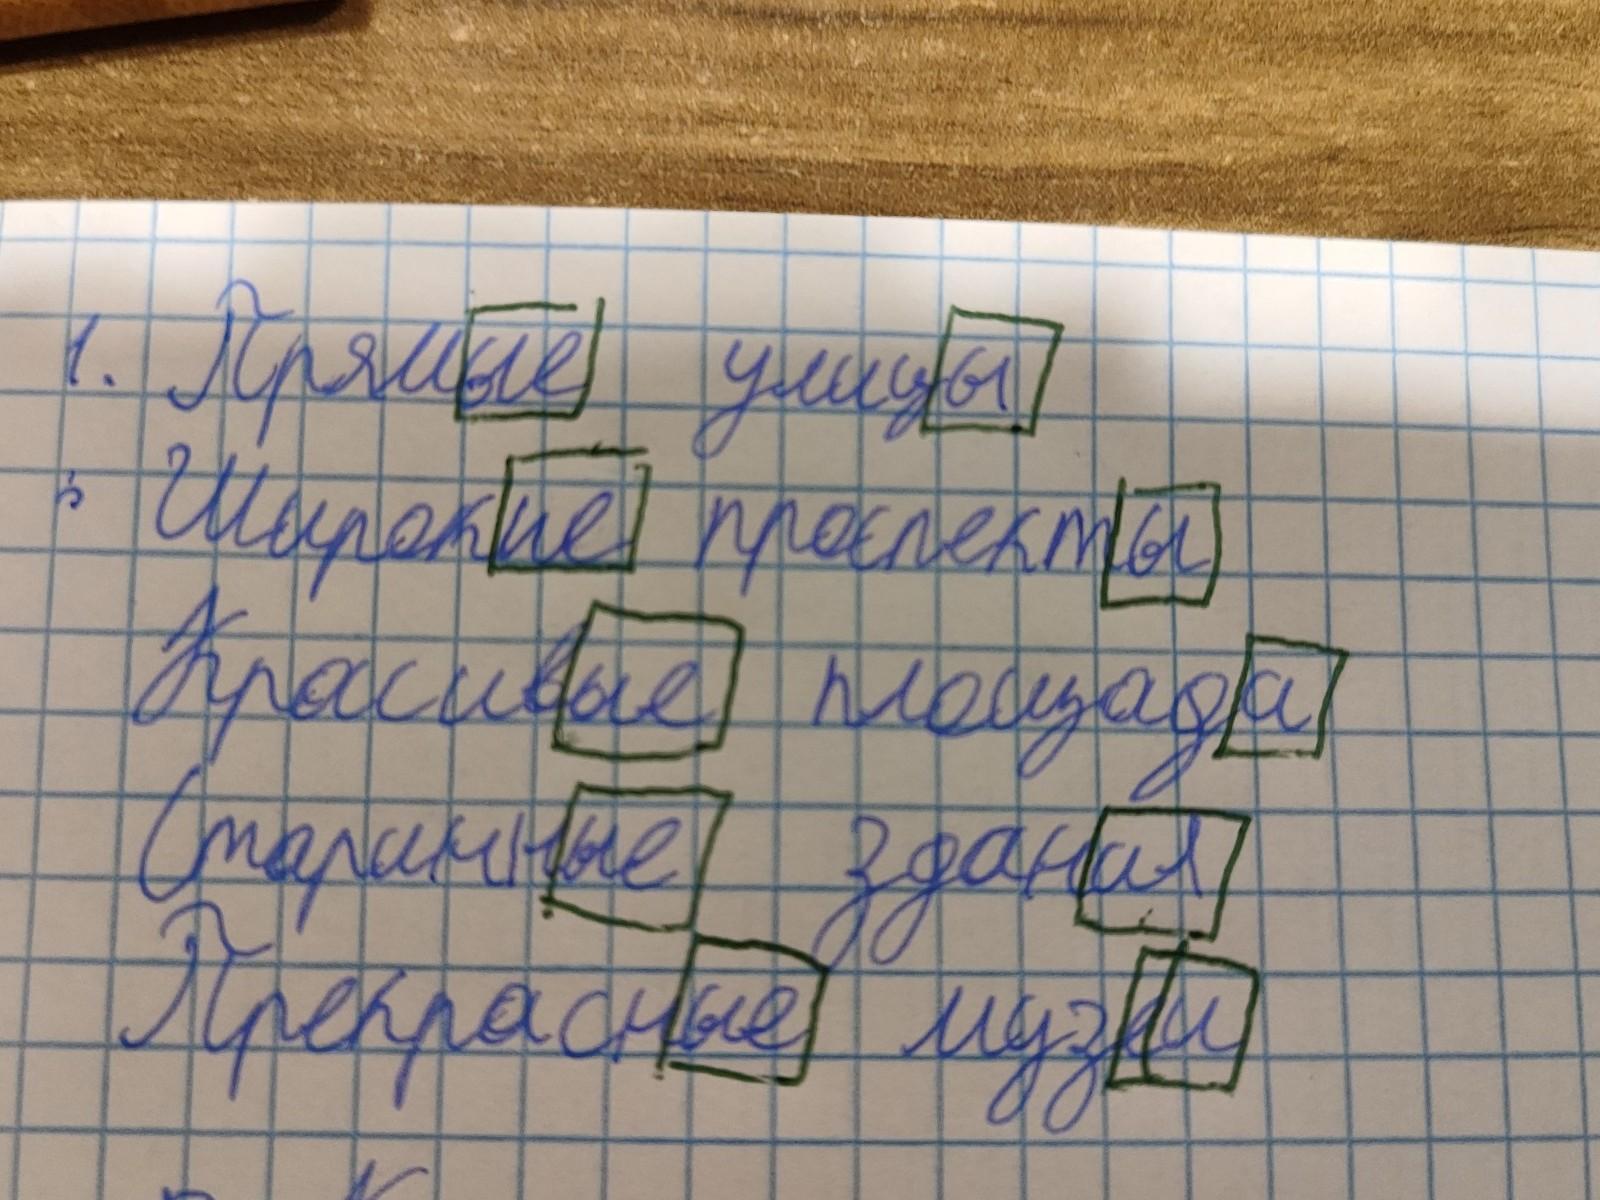 1. Прямые улицы
Широкие проспекты
Красивые площада
Старинные здания
Прекрасные музеи